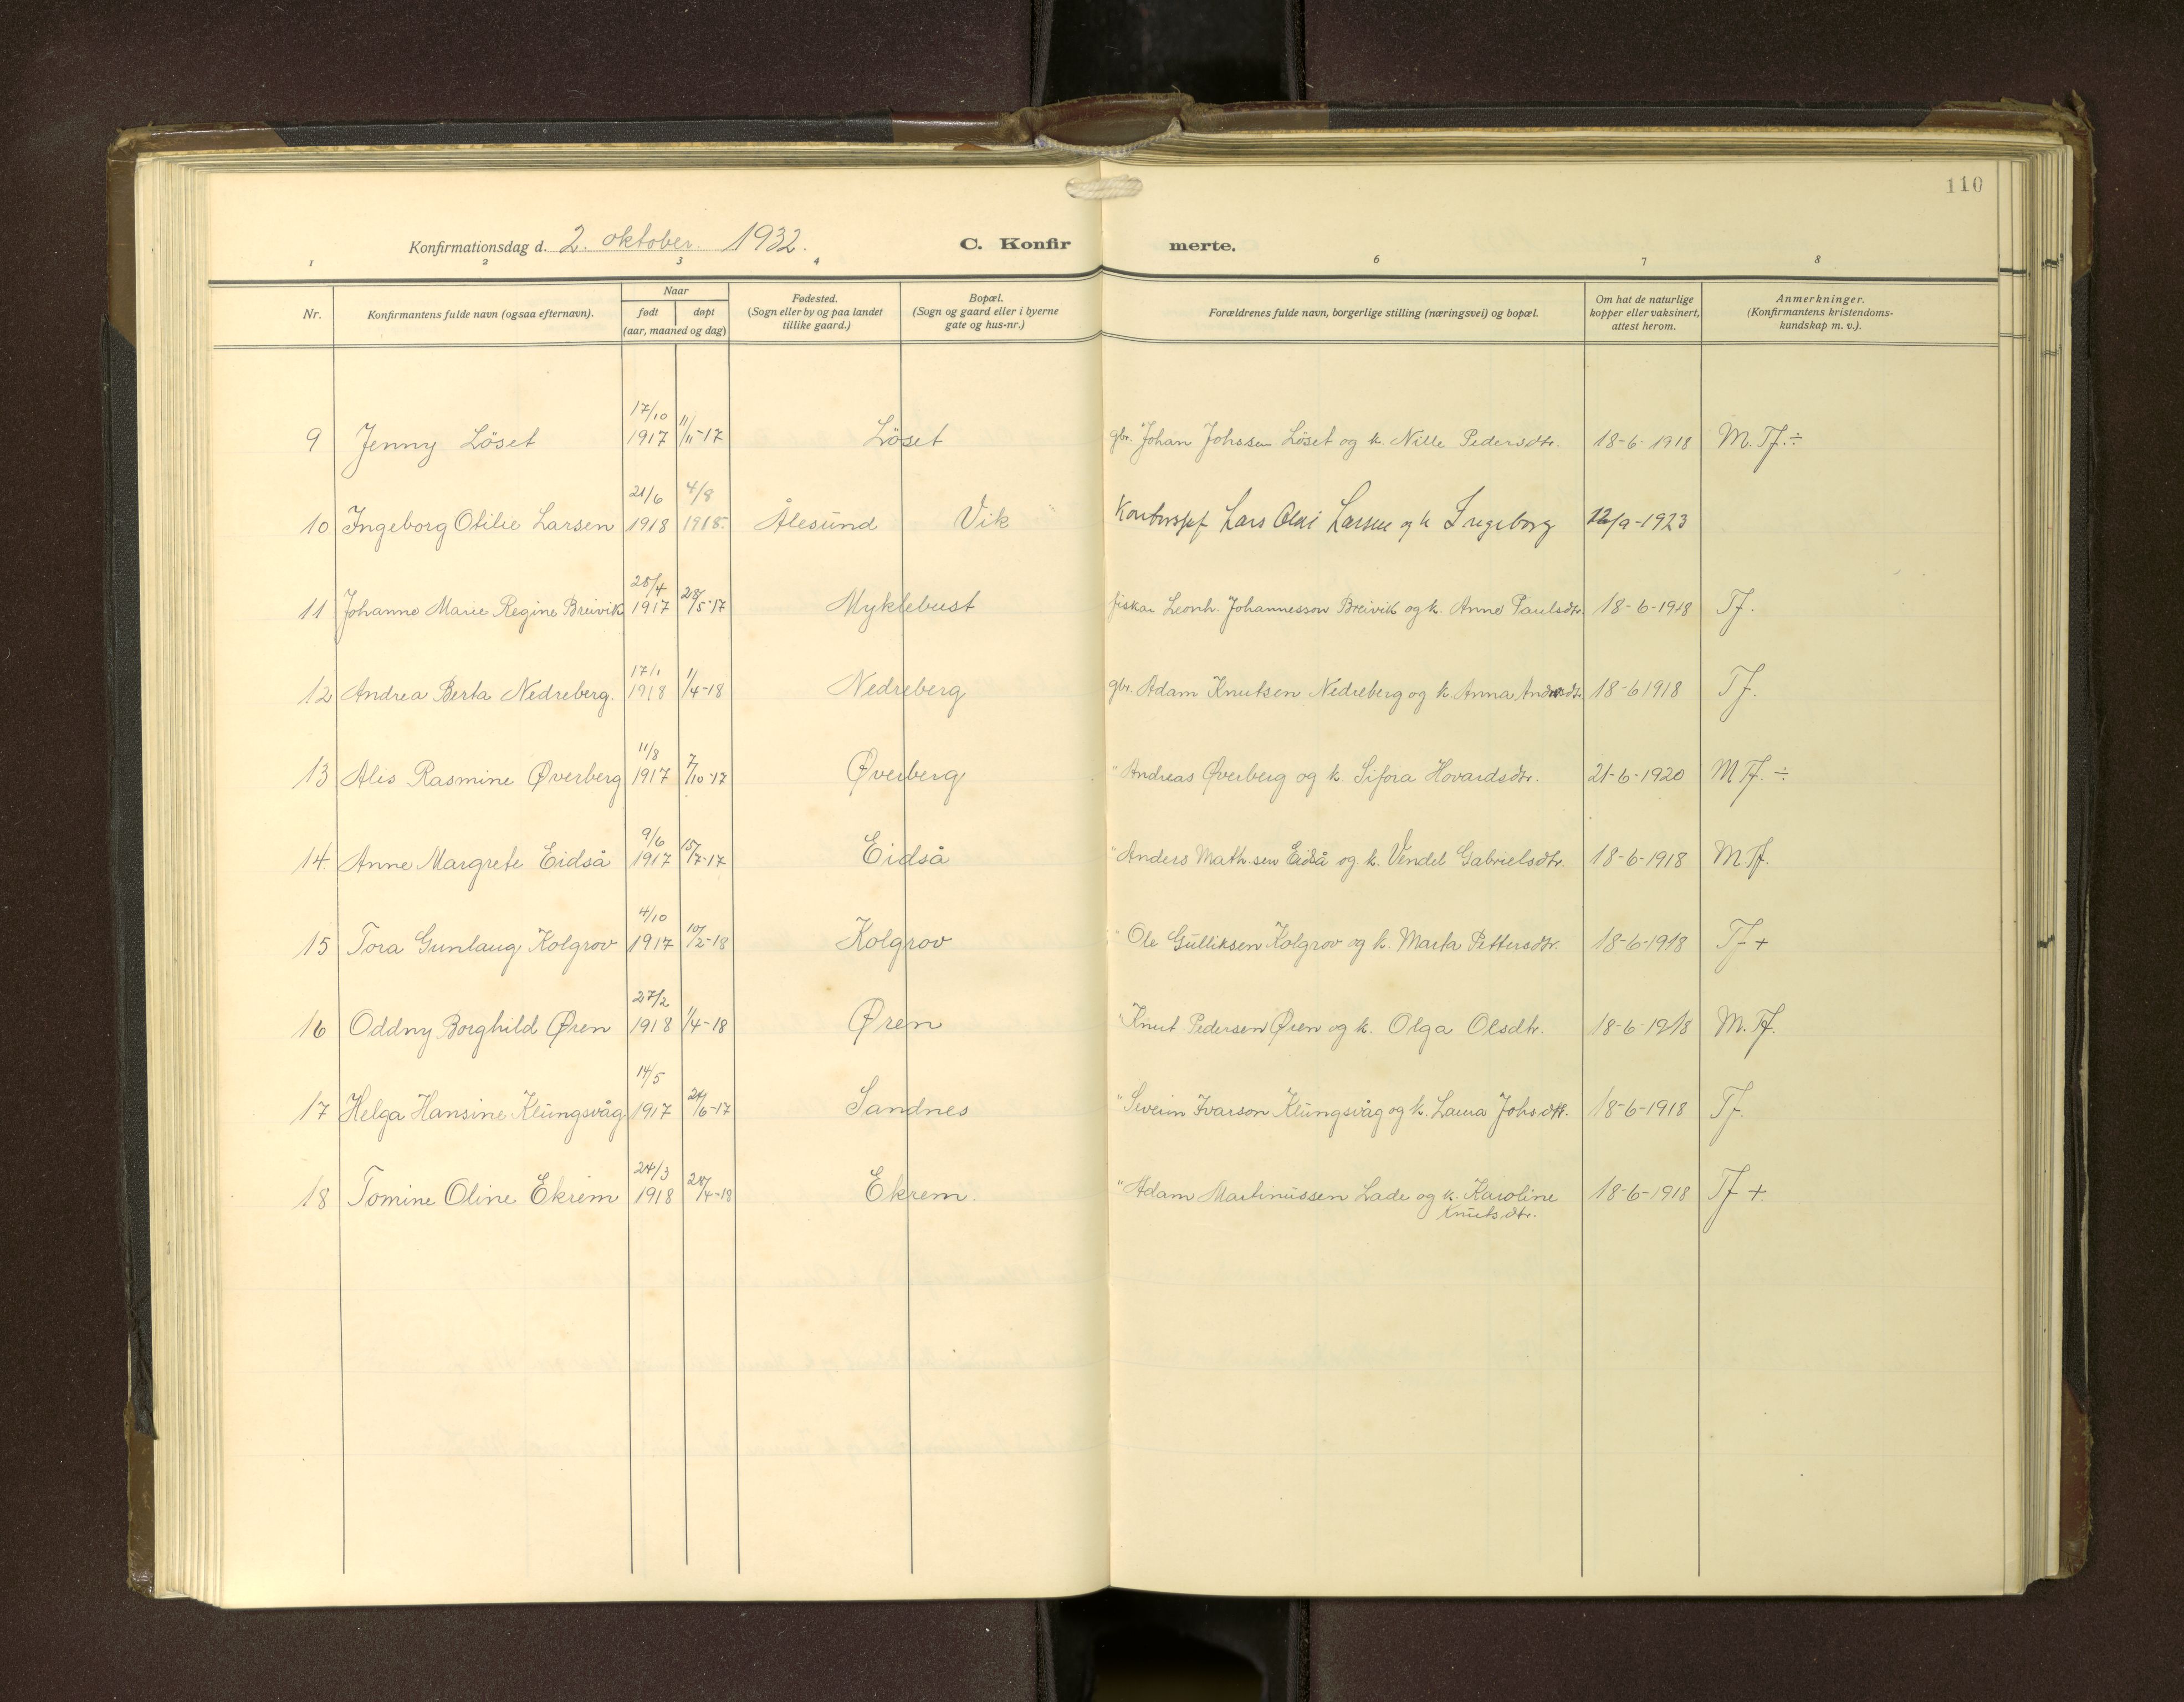 110
Konfirmationsdag d. 2. oktober 1932. C. Konfir merte.
1 2 3 4 6 7 8
Nr. Konfirmantens fulde navn (ogsaa efternavn). Naar født døpt (aar, maaned og dag) Fødested. (Sogn eller by og paa landet tillike gaard.) Bopæl. (Sogn og gaard eller i byerne gate og hus-nr.) Forældrenes fulde navn, borgerlige stilling (næringsvei) og bopæl. Om hat de naturlige kopper eller vaksinert, attest herom. Anmerkninger. (Konfirmantens kristendoms-kundskap m. v.).
9 Jenny Löset 17/10 1917 11/11-17 Löset gbr. Johan Johssen Löset og k. Nille Pedersdtr. 18-6-1918 M. Tf. ÷
10 Ingeborg Otilie Larsen 21/6 1918 4/8 1918. Ålesund Vik Lars Olai Larsen og k Ingeborg 12/9-1923
11 Johanne Marie Regine Breivik 25/4 1917 28/5-17 Myklebust fiskar Leonh. Johannesson Breivik og k. Anne Paulsdtr. 18-6-1918 Tf.
12 Andrea Berta Nedreberg. 17/1 1918 1/4-18 Nedreberg gbr. Adam Knutsen Nedreberg og k. Anna Andersdtr. 18-6 1918 Tf.
13 Alis Rasmine Øverberg 11/8 1917 7/10-17 Øverberg " Andreas Øverberg og k. Sifora Hovardsdtr. 21-6-1920 M Tf. ÷
14 Anne Margrete Eidså 9/6 1917 15/7-17 Eidså " Anders Math.sen Eidså og k. Vendel Gabrielsdtr. 18-6-1918 M. Tf.
15 Tora Gunlaug Kolgrov 4/10 1917 10/2-18 Kolgrov " Ole Gulliksen Kolgrov og k. Marta Pettersdtr. 18-6-1918 Tf +
16 Oddny Borghild Øren 27/2 1918 1/4-18 Øren " Knut Pedersen Øren og k. Olga Olsdtr. 18-6-1918 M. Tf.
17 Helga Hansine Klungsvåg 14/5 1917 24/6-17 Sandnes " Severin Ivarson Klungsvåg og k. Laura Johsdtr. 18-6-1918 Tf.
18 Tomine Oline Ekrem 24/3 1918 28/4-18 Ekrem. " Adam Martinussen Lade og k. Karoline 18-6-1918 Tf +.
Knutsdtr.